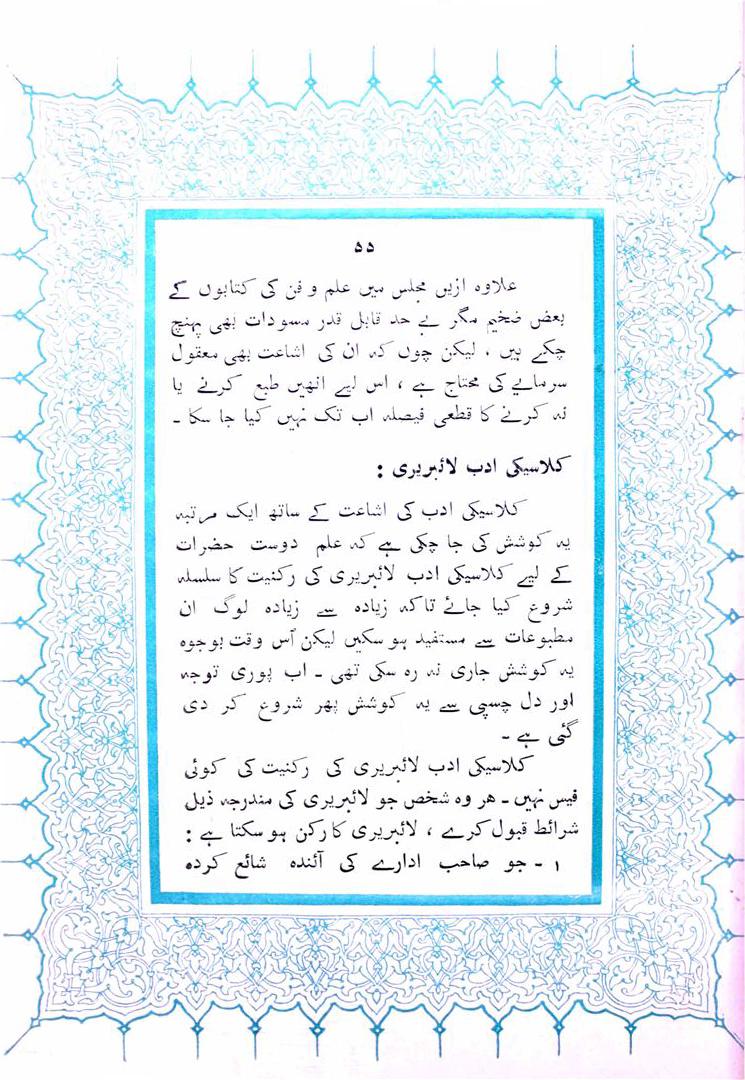 ۵۵
علاوہ ازیں مجلس میں علم و فن کی کتابوں کے
بعض ضخیم مگر بے حد قابل قدر مسودات بھی پہنچ
چکے ہیں ، لیکن چوں کہ ان کی اشاعت بھی معقول
سرمایے کی محتاج ہے ، اس لیے انھیں طبع کرنے یا
نہ کرنے کا قطعی فیصلہ اب تک نہیں کیا جا سکا ۔
کلاسیکی ادب لائبریری :
کلاسیکی ادب کی اشاعت کے ساتھ ایک مرتبہ
یہ کوشش کی جا چکی ہے کہ علم دوست حضرات
کے لیے کلاسیکی ادب لائبریری کی رکنیت کا سلسلہ
شروع کیا جائے تاکہ زیادہ سے زیادہ لوگ ان
مطبوعات سے مستفید ہو سکیں لیکن اُس وقت بوجوہ
یہ کوشش جاری نہ رہ سکی تھی ۔ اب پوری توجہ
اور دل چسپی سے یہ کوشش پھر شروع کر دی
گئی ہے ۔
کلاسیکی ادب لائبریری کی رکنیت کی کوئی
فیس نہیں ۔ ہر وہ شخص جو لائبریری کی مندرجہ ذیل
شرائط قبول کرے ، لائبریری کا رکن ہو سکتا ہے :
۱ ۔ جو صاحب ادارے کی آئندہ شائع کردہ